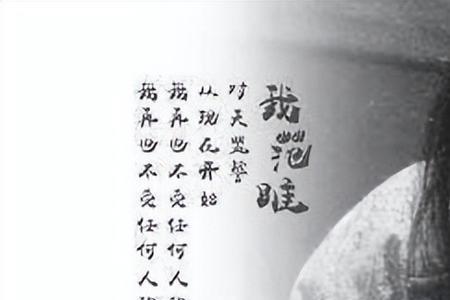 我范雎
对天盟誓
从现在开始
我再也不受任何人
我再也不受任何人